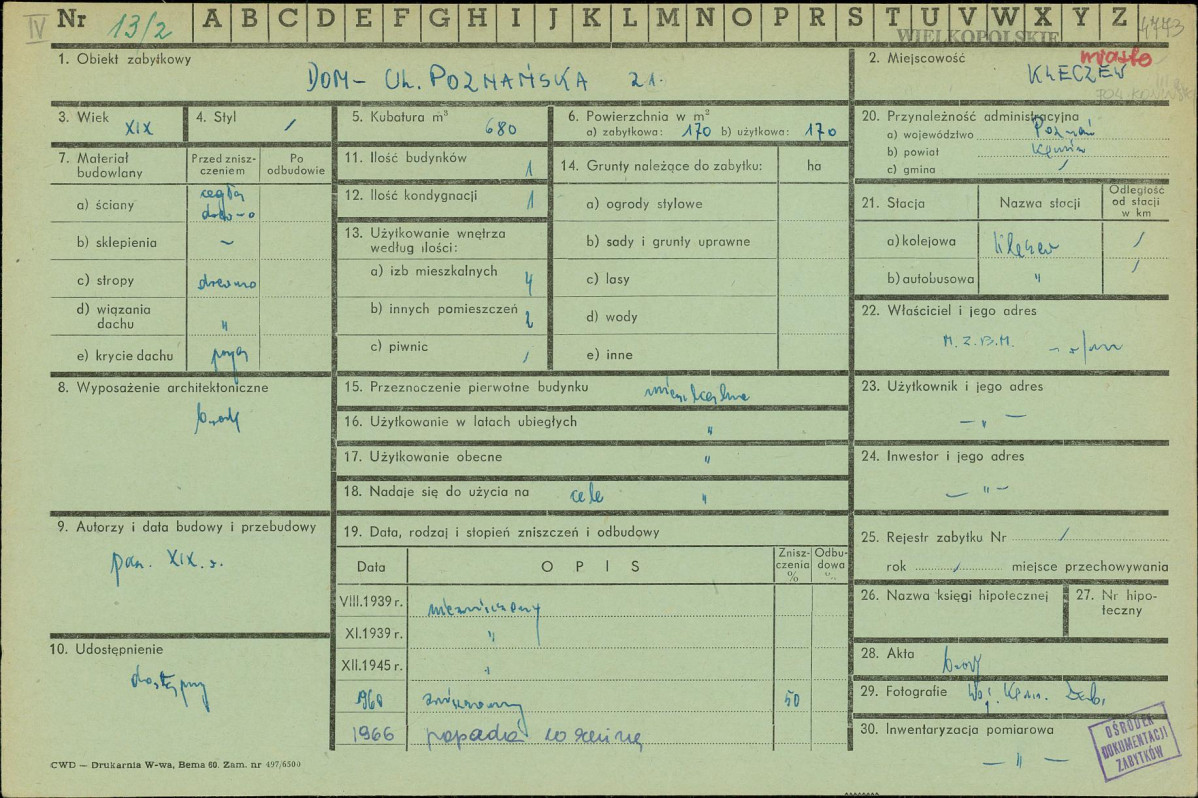 IV Nr 13/2 A B C D E F G H I J K L M N O P R S T U V W X Y Z 4473
WIELKOPOLSKIE
1. Obiekt zabytkowy
DOM – Ul. POZNAŃSKA 21.
2. Miejscowość miasto
KLECZEW
3. Wiek XIX
4. Styl /
5. Kubatura m³ 680
6. Powierzchnia w m²
a) zabytkowa: 170 b) użytkowa: 170
20. Przynależność administracyjna
a) województwo Poznań
b) powiat
c) gmina /
7. Materiał budowlany
Przed zniszczeniem
Po odbudowie
a) ściany cegła drewno
b) sklepienia –
c) stropy drewno
d) wiązania dachu "
e) krycie dachu papa
11. Ilość budynków 1
12. Ilość kondygnacji 1
13. Użytkowanie wnętrza według ilości:
a) izb mieszkalnych 4
b) innych pomieszczeń 2
c) piwnic /
14. Grunty należące do zabytku: ha
a) ogrody stylowe
b) sady i grunty uprawne
c) lasy
d) wody
e) inne
21. Stacja Nazwa stacji Odległość od stacji w km
a) kolejowa Kleczew /
b) autobusowa " /
22. Właściciel i jego adres
M.Z.B.M.
8. Wyposażenie architektoniczne
brak
15. Przeznaczenie pierwotne budynku mieszkalne
16. Użytkowanie w latach ubiegłych "
17. Użytkowanie obecne "
18. Nadaje się do użycia na cele "
23. Użytkownik i jego adres
– " –
24. Inwestor i jego adres
– " –
9. Autorzy i data budowy i przebudowy
XIX w.
19. Data, rodzaj i stopień zniszczeń i odbudowy
Data OPIS Zniszczenia % Odbudowa %
VIII.1939 r. niezniszczony
XI.1939 r. "
XII.1945 r. "
1960 zniszczony 50
1966 popada w ruinę
25. Rejestr zabytku Nr /
rok / miejsce przechowywania
26. Nazwa księgi hipotecznej
27. Nr hipoteczny
10. Udostępnienie
dostępny
28. Akta brak
29. Fotografie Woj. Kons. Zab.
30. Inwentaryzacja pomiarowa
– " –
OŚRODEK
DOKUMENTACJI
ZABYTKÓW
CWD — Drukarnia W-wa, Bema 60. Zam. nr 497/6500